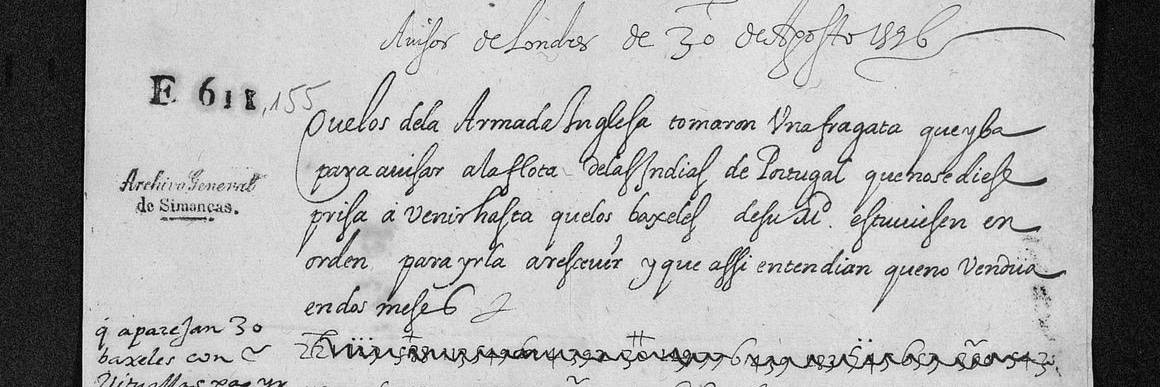 Avisos de Londres de 30 de Agosto 1596
E 611, 155
Archivo General
de Simancas.
Que los dela Armada Inglesa tomaron Vna fragata que yba
para auisar ala flota delas Indias de Portugal que no se diese
prisa á Venir hasta que los baxeles de su Md. estuuiesen en
orden para yrla a resceuir y que assi entendian que no Vendria
en dos meses
q̃ aparejan 30
baxeles con
Vituallas para yr